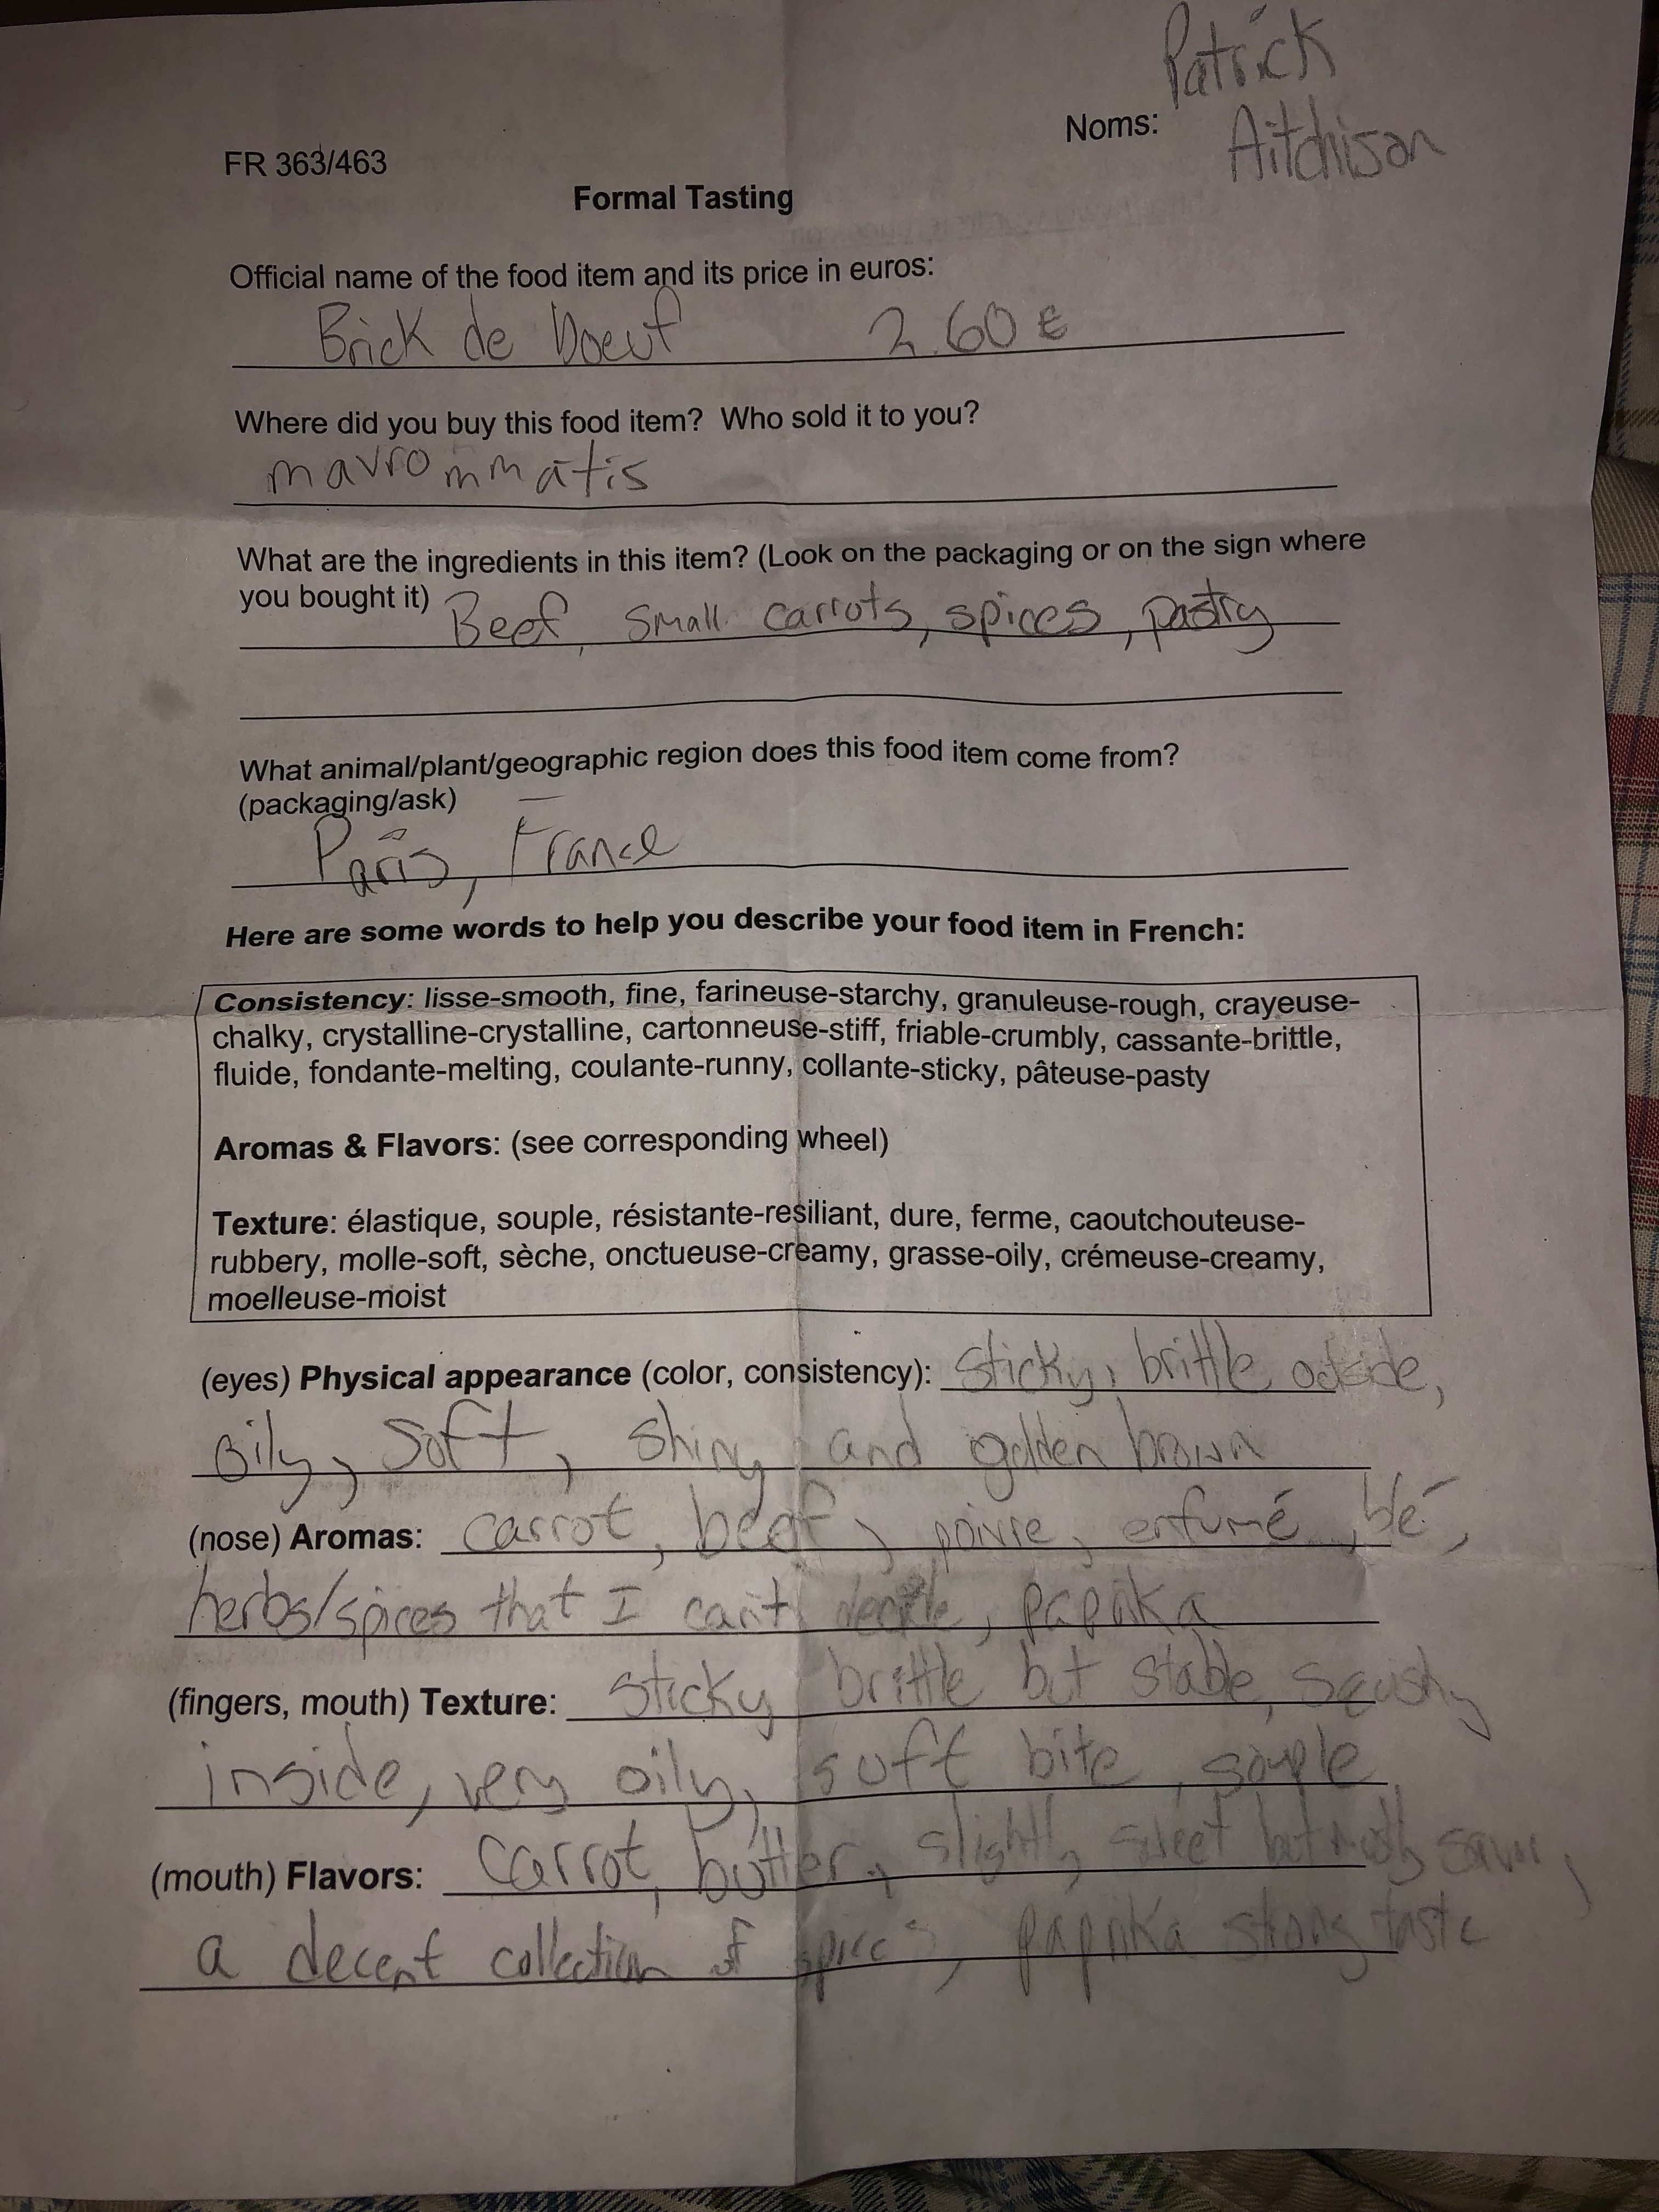 Patrick
Noms: Aitchison
FR 363/463
Formal Tasting
Official name of the food item and its price in euros:
Brick de boeuf 2.60 €
Where did you buy this food item? Who sold it to you?
mavrommatis
What are the ingredients in this item? (Look on the packaging or on the sign where
you bought it) Beef, small carrots, spices, pastry
What animal/plant/geographic region does this food item come from?
(packaging/ask)
Paris, France
Here are some words to help you describe your food item in French:
Consistency: lisse-smooth, fine, farineuse-starchy, granuleuse-rough, crayeuse-
chalky, crystalline-crystalline, cartonneuse-stiff, friable-crumbly, cassante-brittle,
fluide, fondante-melting, coulante-runny, collante-sticky, pâteuse-pasty
Aromas & Flavors: (see corresponding wheel)
Texture: élastique, souple, résistante-resiliant, dure, ferme, caoutchouteuse-
rubbery, molle-soft, sèche, onctueuse-creamy, grasse-oily, crémeuse-creamy,
moelleuse-moist
(eyes) Physical appearance (color, consistency): sticky, brittle outside,
oily, soft, shiny and golden brown
(nose) Aromas: carrot, beef, poivre, enfumé, blé,
herbs/spices that I can't, paprika
(fingers, mouth) Texture: sticky brittle but stable, squishy
inside, very oily, soft bite, souple
(mouth) Flavors: carrot, butter, slightly sweet but mostly savory,
a decent collection of spices, paprika strong taste